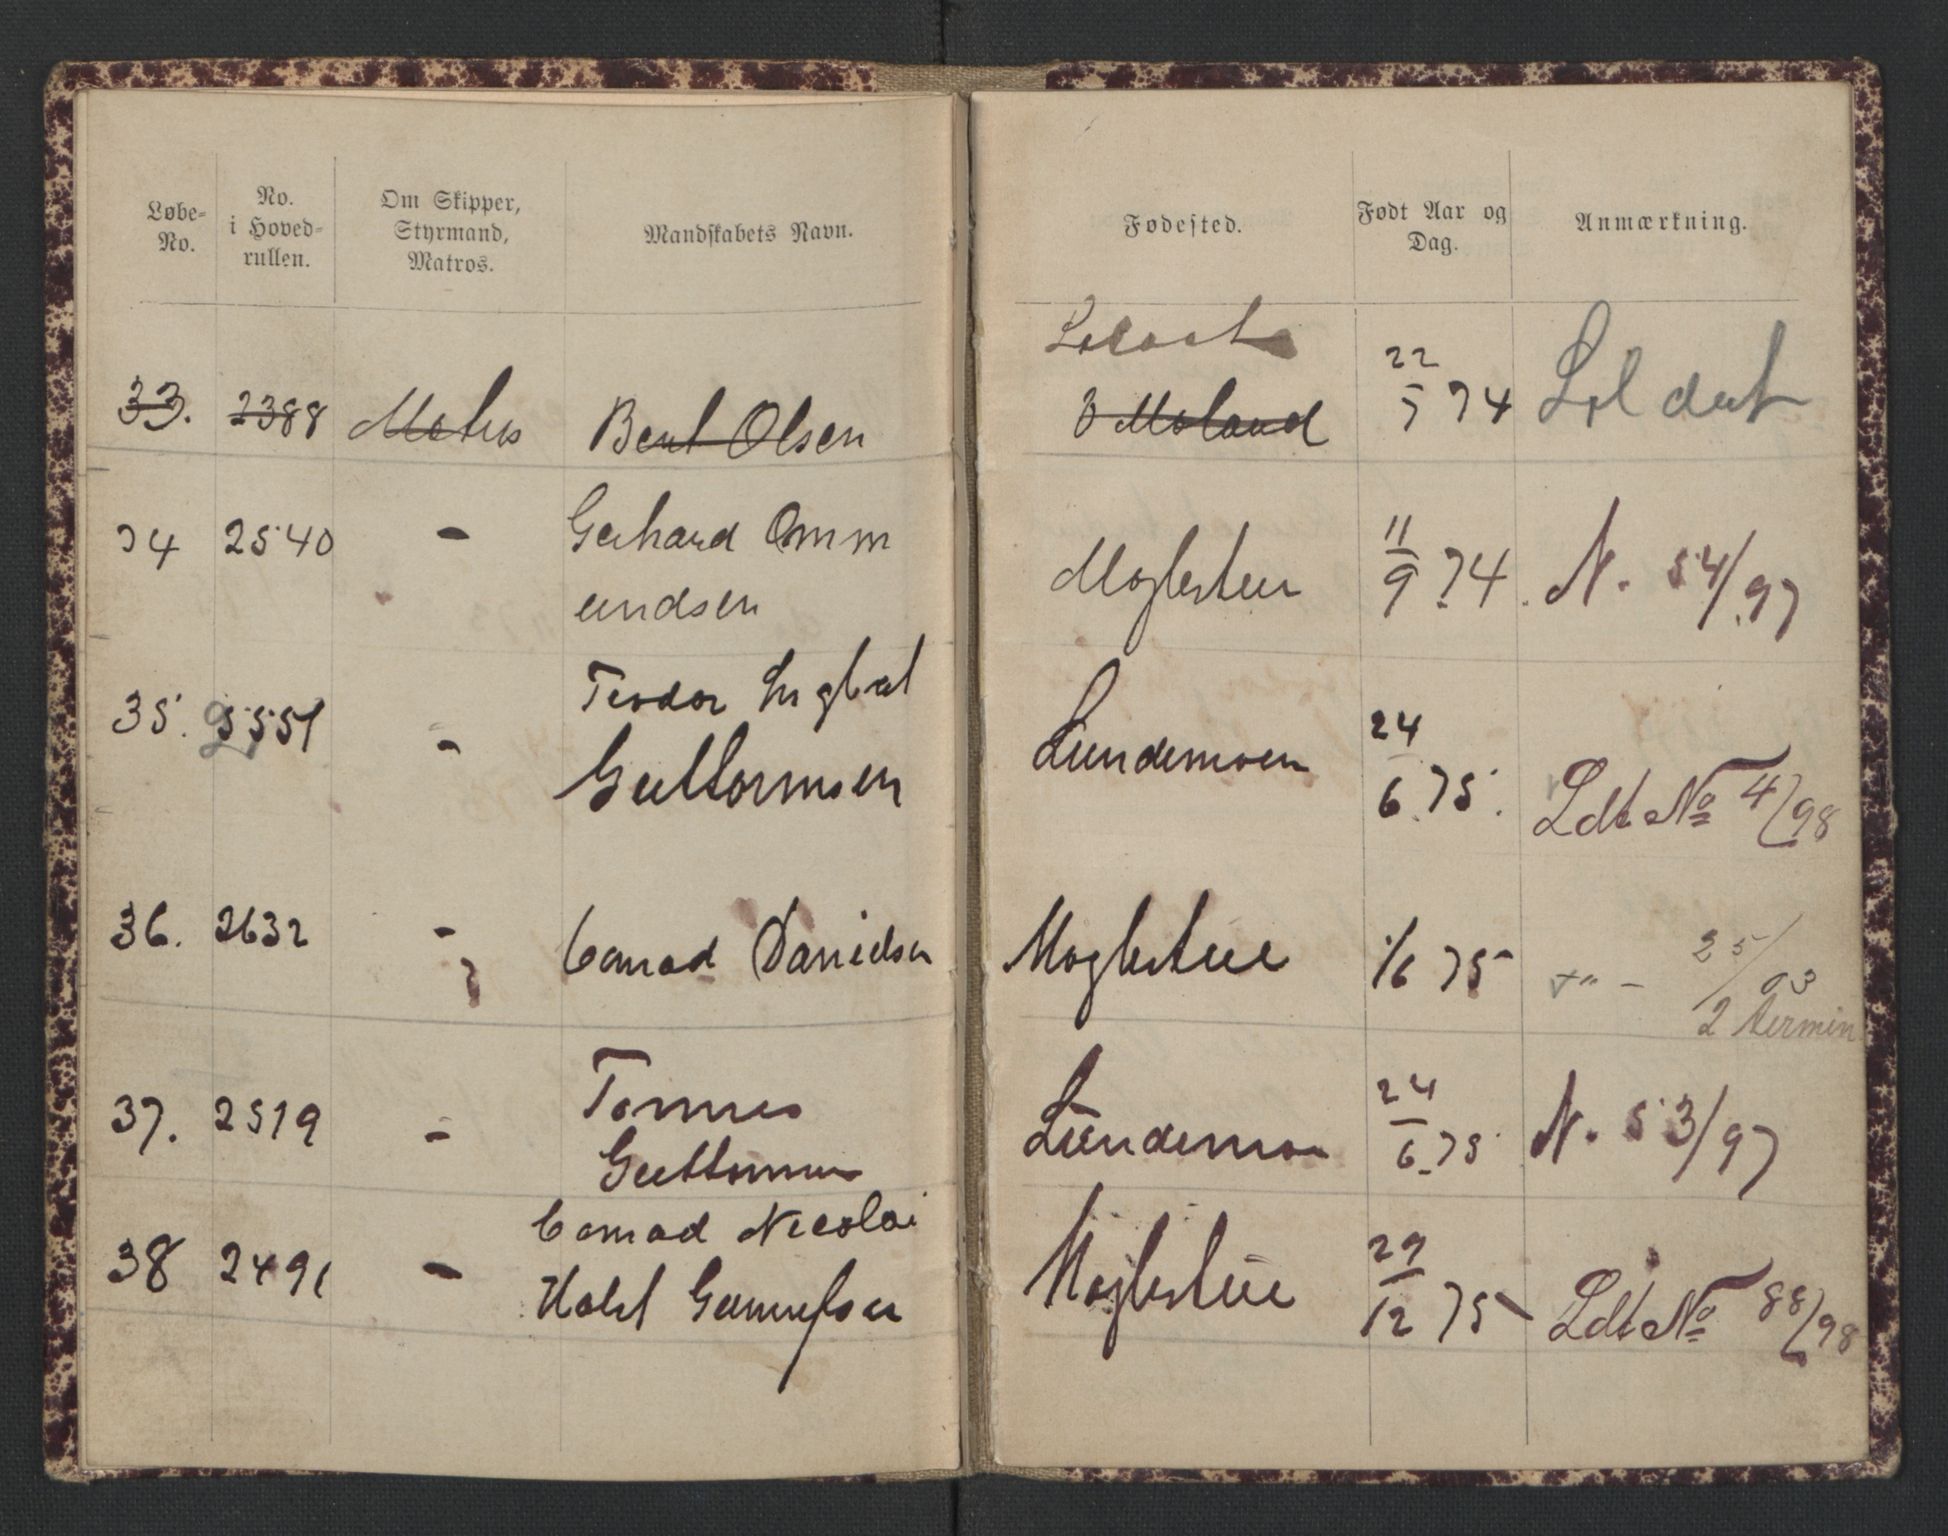 Løbe-
No.
No.
i Hoved-
rullen.
Om Skipper,
Styrmand,
Matros.
Mandskabets Navn.
Fødested.
Født Aar og
Dag.
Anmærkning.
33. 2388 Matros Bent Olsen V Moland 22/5 74 Soldat
34 2540 - Gerhard Omm
undsen Moglestue 11/9 74. N. 54/97
35. 2551 - Teodor Ingbal
Guttormsen Lundemoen 24/6 75. Ldt No 4/98
36. 2632 - Conrad Danielsen Moglestue 1/6 75 -"- 25/03
2 termin
37. 2519 - Tomes
Guttormsen Lundemoen 24/6 75 N. 53/97
38 2491 - Conrad Nicolai
Holst Gunnufsen Moglestue 29/12 75 Ldt No 88/98